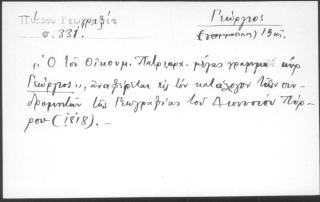 Πύρρου Γεωγραφία
σ. 331.
Γεώργιος
(γραμματικός) 19 αἰ.
"Ὁ τοῦ Οἰκουμ. Πατριαρχ. μέγας γραμμα κύρ
Γεώργιος", ἀναφέρεται εἰς τὸν κατάλογον τῶν συν-
δρομητῶν τῆς Γεωγραφίας τοῦ Διονυσίου Πύρ-
ρου (1818). —